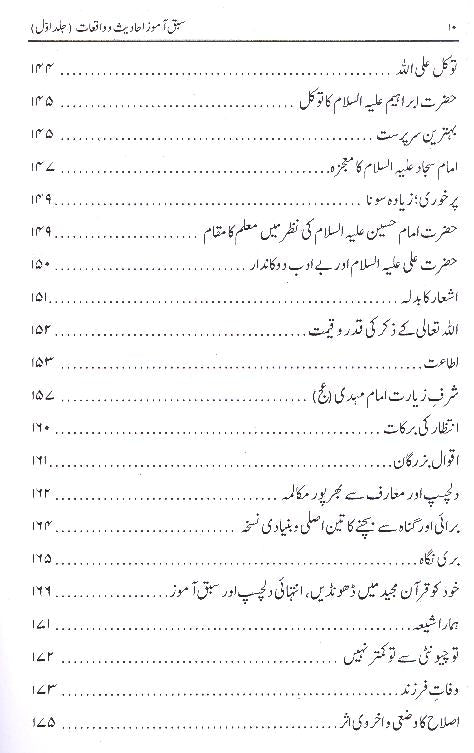 ۱۰ سبق آموز احادیث و واقعات (جلد اوّل)
توکل علی اللہ ۱۴۴
حضرت ابراہیم علیہ السلام کا توکل ۱۴۵
بہترین سرپرست ۱۴۵
امام سجاد علیہ السلام کا معجزہ ۱۴۷
پرخوری؛ زیادہ سونا ۱۴۹
حضرت امام حسین علیہ السلام کی نظر میں معلم کا مقام ۱۴۹
حضرت علی علیہ السلام اور بے ادب دوکاندار ۱۵۰
اشعار کا بدلہ ۱۵۱
اللہ تعالی کے ذکر کی قدر و قیمت ۱۵۲
اطاعت ۱۵۳
شرفِ زیارت امام مہدی (عج) ۱۵۷
انتظار کی برکات ۱۶۰
اقوال بزرگان ۱۶۱
دلچسپ اور معارف سے بھرپور مکالمہ ۱۶۲
برائی اور گناہ سے بچنے کا تین اصلی و بنیادی نسخہ ۱۶۴
بری نگاہ ۱۶۵
خود کو قرآن مجید میں ڈھونڈیں، انتہائی دلچسپ اور سبق آموز ۱۶۶
ہمارا شیعہ ۱۷۱
تو چیونٹی سے تو کمتر نہیں ۱۷۲
وفاتِ فرزند ۱۷۳
اصلاح کا وضعی و اخروی اثر ۱۷۵